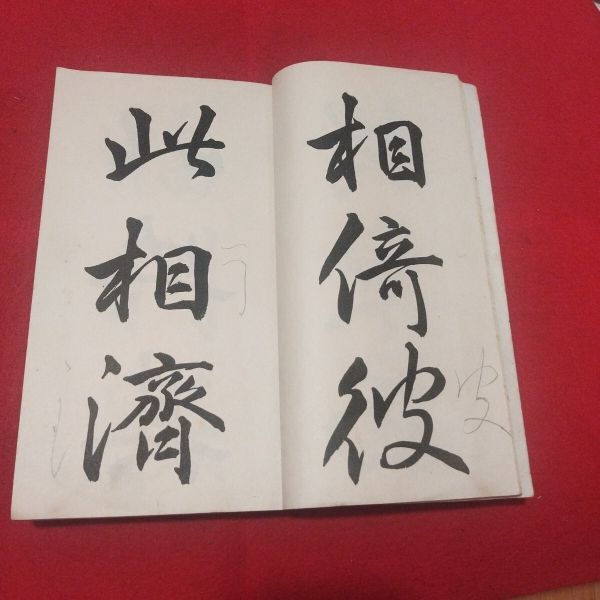 相倚彼
此相濟
皮